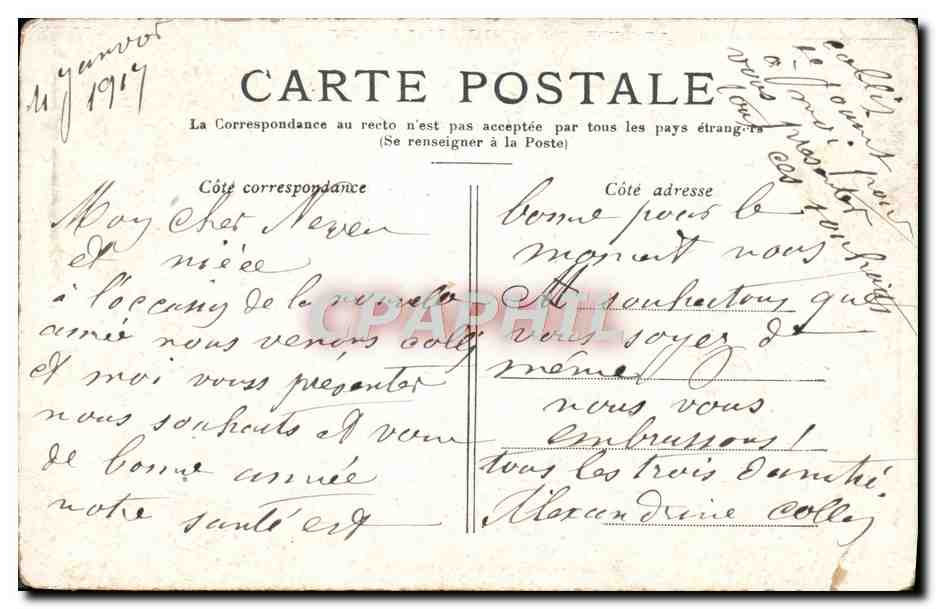 11 Janvor
1917
CARTE POSTALE
La Correspondance au recto n'est pas acceptée par tous les pays étrangers
(Se renseigner à la Poste)
Côté correspondance
Mon cher Neveu
et nièce
à l'occasion de la nouvelle
année nous venons Colly
et moi vouss présenter
nous souhaits et vœu
de bonne année
notre santé est
Côté adresse
bonne pour le
moment nous
souhaitons que
vous soyez de
même
nous vous
embrassons!
tous les trois d'amitié.
Alexandrine Colley
se joint pour
a moi
vous presenter
tous ces souhaits
CPAPHIL